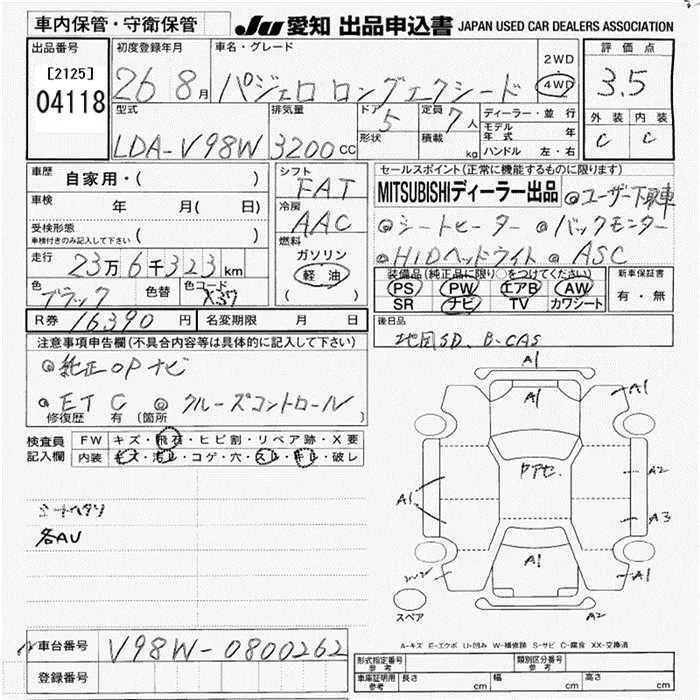 車内保管・守衛保管
JU 愛知 出品申込書 JAPAN USED CAR DEALERS ASSOCIATION
出品番号
[2125]
04118
初度登録年月
26 8月
車名・グレード
パジェロ ロングエクシード
2WD
4WD
評価点
3.5
外装 内装
C C
型式
LDA-V98W
排気量
3200cc
ドア 5
形状
定員 7人
積載 kg
ディーラー・並行
モデル年式 年
ハンドル 左・右
車歴 自家用・( )
車検 年 月( 日)
受検形態
車検付きのみ記入して下さい ( )
走行 23万6千323km
色 ブラック 色替 色コード X37
シフト FAT
冷房 AAC
燃料
ガソリン
軽油
( )
セールスポイント(正常に機能するものに限ります)
MITSUBISHIディーラー出品 ◎ユーザー下取車
◎シートヒーター ◎バックモニター
◎HIDヘッドライト ◎ASC
装備品(純正品に限り○をつけてください)
PS PW エアB AW
SR ナビ TV カワシート
新車保証書
有・無
R券 16390円 名変期限 月 日
後日品
地図SD、B-CAS
注意事項申告欄(不具合内容等は具体的に記入して下さい)
◎純正OPナビ
◎ETC ◎クルーズコントロール
修復歴 有 (箇所 )
検査員記入欄
FW キズ・飛石・ヒビ割・リペア跡・X要
内装 キズ・汚レ・コゲ・穴・スレ・キレ・破レ
シートヘタリ
各AU
A1
A1
A1
A2
A1
A3
A1
A1
A2
スペア
A-キズ E-エクボ U-凹み W-補修跡 S-サビ C-腐食 XX-交換済
車台番号 V98W-0800262
登録番号
形式指定番号 参考
類別区分番号 参考
車庫証明用 参考 長さ cm 幅 cm 高さ cm